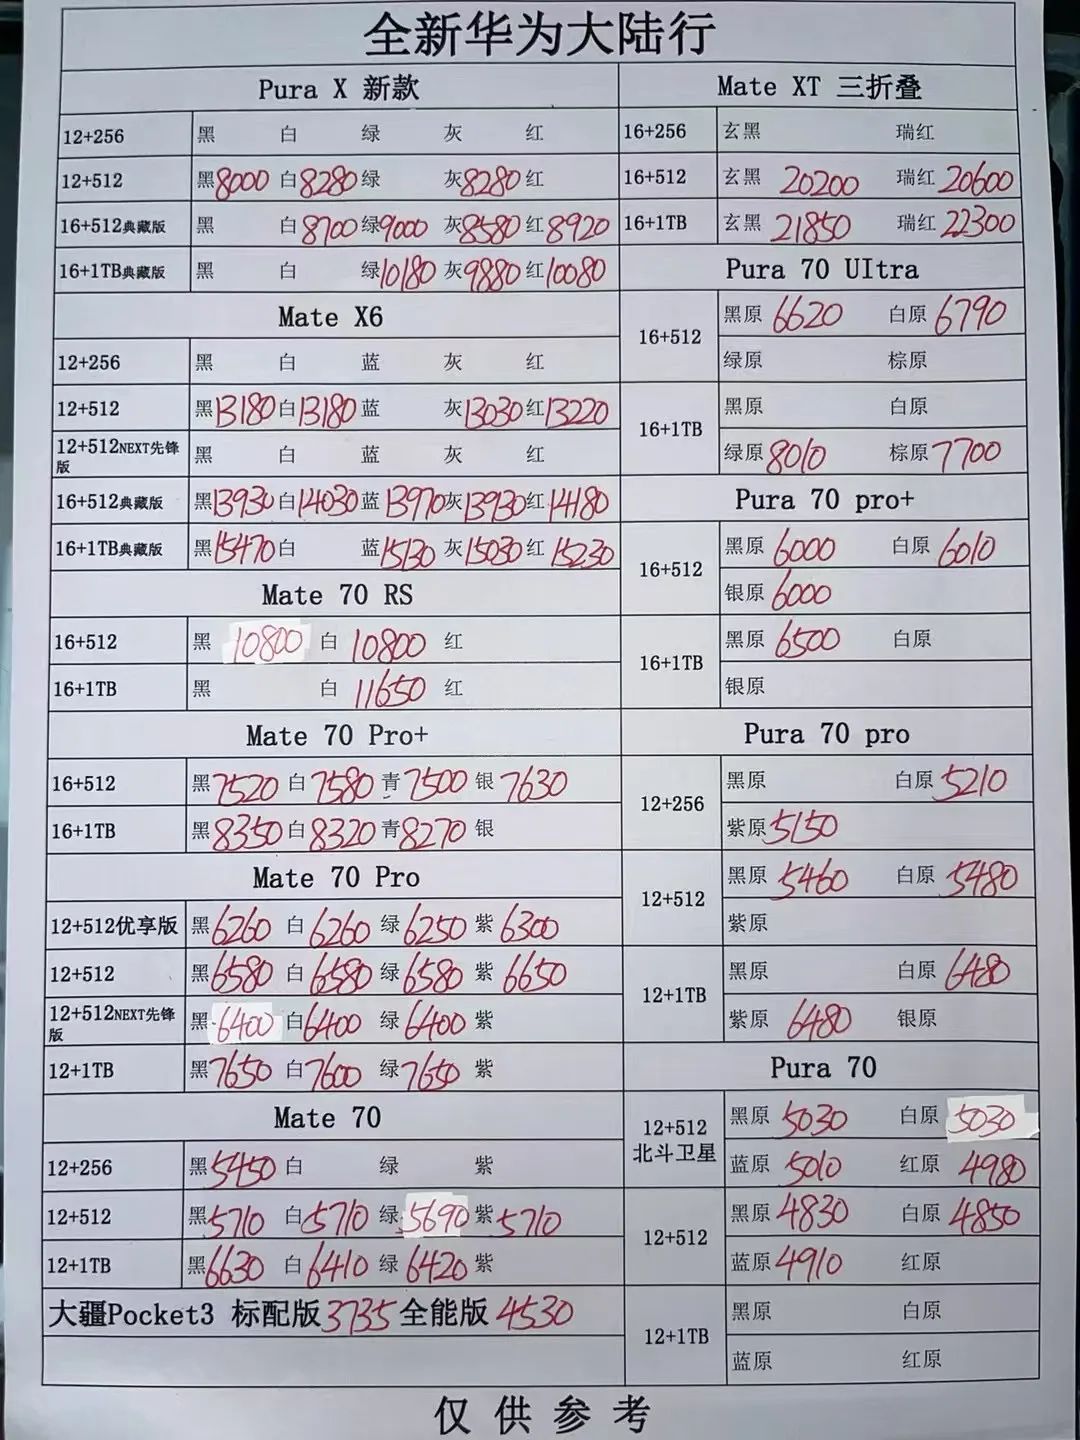 全新华为大陆行
Pura X 新款
12+256 黑 白 绿 灰 红
12+512 黑8000 白8280 绿 灰8280 红
16+512典藏版 黑 白8700 绿9000 灰8580 红8920
16+1TB典藏版 黑 白 绿10180 灰9880 红10080
Mate X6
12+256 黑 白 蓝 灰 红
12+512 黑13180 白13180 蓝 灰13030 红13220
12+512NEXT先锋版 黑 白 蓝 灰 红
16+512典藏版 黑13930 白14030 蓝13970 灰13930 红14180
16+1TB典藏版 黑15470 白 蓝15130 灰15030 红15230
Mate 70 RS
16+512 黑 10800 白 10800 红
16+1TB 黑 白 11650 红
Mate 70 Pro+
16+512 黑7520 白7580 青7500 银7630
16+1TB 黑8350 白8320 青8270 银
Mate 70 Pro
12+512优享版 黑6260 白6260 绿6250 紫6300
12+512 黑6580 白6580 绿6580 紫6650
12+512NEXT先锋版 黑6400 白6400 绿6400 紫
12+1TB 黑7650 白7600 绿7650 紫
Mate 70
12+256 黑5450 白 绿 紫
12+512 黑5710 白5710 绿5690 紫5710
12+1TB 黑6630 白6410 绿6420 紫
大疆Pocket3 标配版3735 全能版4530
Mate XT 三折叠
16+256 玄黑 瑞红
16+512 玄黑 20200 瑞红 20600
16+1TB 玄黑 21850 瑞红 22300
Pura 70 UItra
16+512 黑原 6620 白原 6790
绿原 棕原
16+1TB 黑原 白原
绿原 8010 棕原 7700
Pura 70 pro+
16+512 黑原 6000 白原 6010
银原 6000
16+1TB 黑原 6500 白原
银原
Pura 70 pro
12+256 黑原 白原 5210
紫原 5150
12+512 黑原 5460 白原 5480
紫原
12+1TB 黑原 白原 6480
紫原 6480 银原
Pura 70
12+512
北斗卫星
黑原 5030 白原 5030
蓝原 5010 红原 4980
12+512 黑原 4830 白原 4850
蓝原 4910 红原
12+1TB 黑原 白原
蓝原 红原
仅供参考